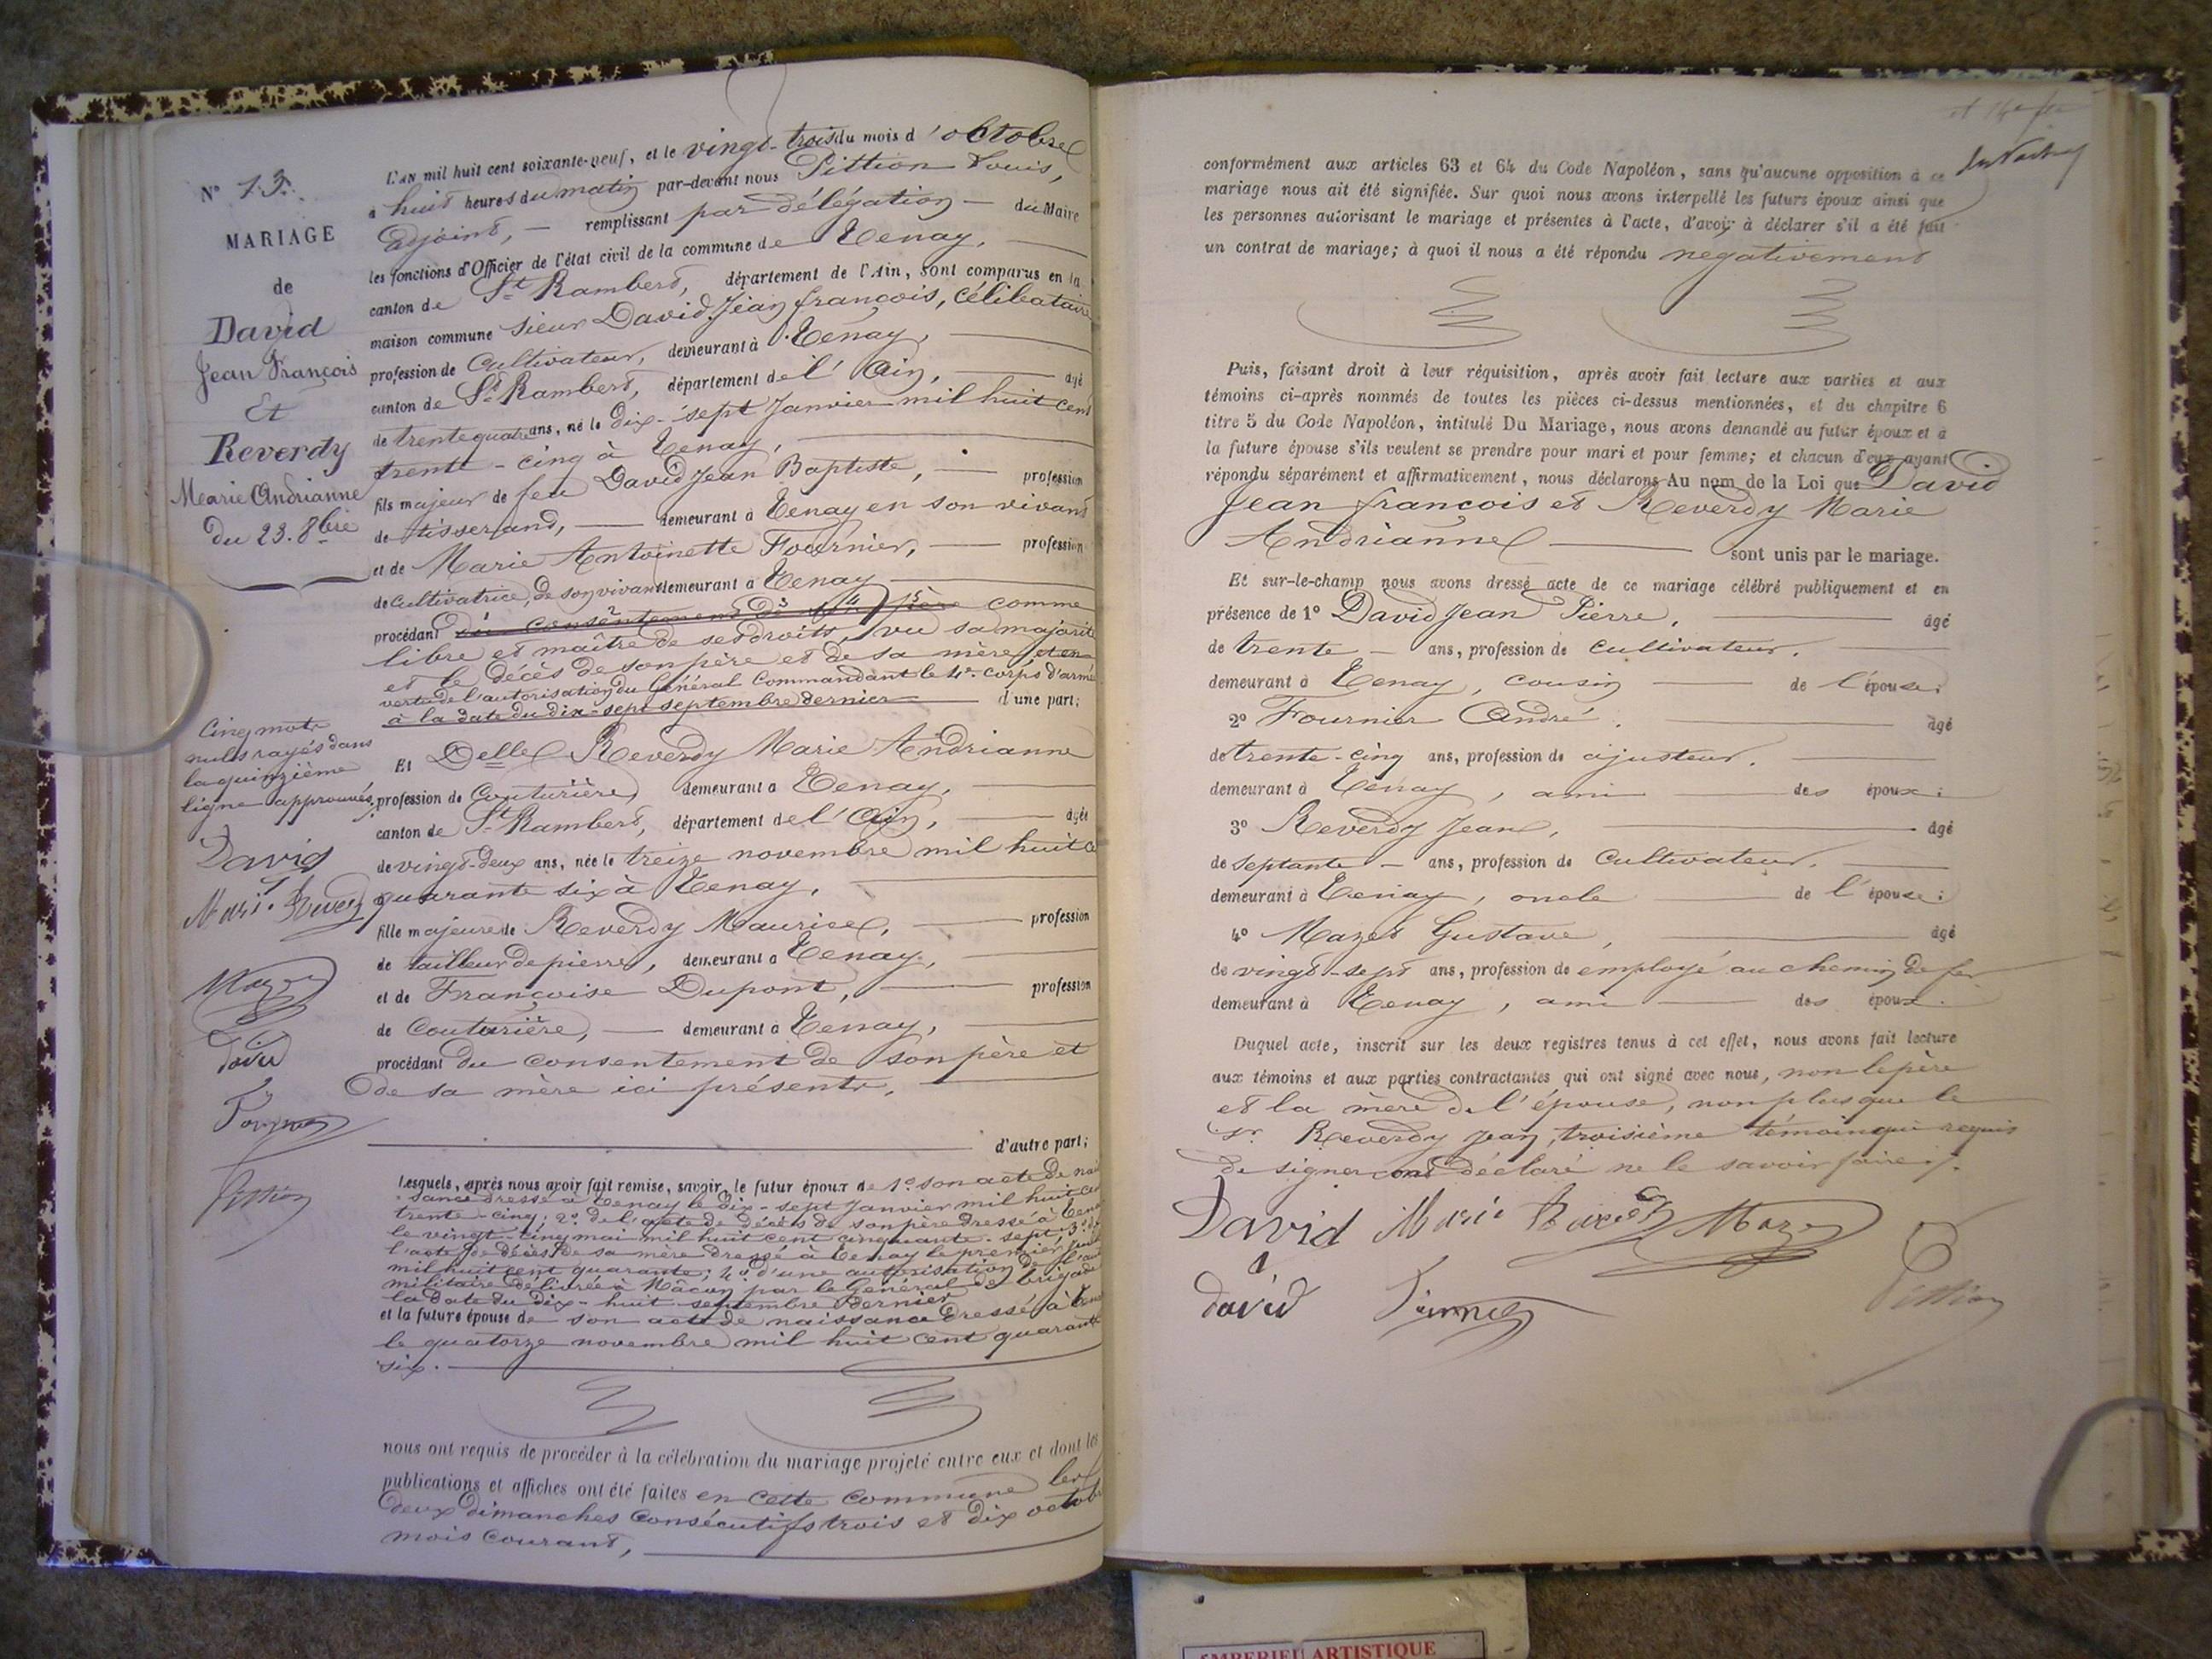 N° 13.
MARIAGE
de
David
Jean François
Et
Reverdy
Marie Andrianne
du 23. 8bre
Cinq mots
nuls rayés dans
la quinzième
ligne approuvés.
David
Marie Reverdy
Mazet
david
Pittion
L'AN mil huit cent soixante-neuf, et le vingt-trois du mois d'octobre
à huit heures du matin par-devant nous Pittion Louis,
adjoint, — remplissant par délégation — du Maire
les fonctions d'Officier de l'état civil de la commune de Tenay,
canton de St Rambert, département de l'Ain, sont comparus en la
maison commune sieur David Jean françois, célibataire
profession de Cultivateur, demeurant à Tenay,
canton de St Rambert, département de l'Ain, âgé
de trente quatre ans, né le Dix-sept Janvier mil huit cent
trente-cinq à Tenay,
fils majeur de feu David Jean Baptiste, — profession
de tisserand, — demeurant à Tenay en son vivant
et de Marie Antoinette Fournier, — profession
de cultivatrice, de son vivant demeurant à Tenay
procédant du consentement de père comme
libre et maître de ses droits, vu sa majorité
et le décès de son père et de sa mère, et en
vertu de l'autorisation du Général Commandant le 4e corps d'armée
à la date du dix-sept septembre dernier — d'une part;
Et Delle Reverdy Marie Andrianne
profession de Couturière, demeurant à Tenay,
canton de St Rambert, département de l'Ain, — âgée
de vingt-deux ans, née le treize novembre mil huit c
quarante six à Tenay,
fille majeure de Reverdy Maurice, — profession
de tailleur de pierres, demeurant à Tenay,
et de Françoise Dupont, — profession
de Couturière, — demeurant à Tenay,
procédant du consentement de son père et
de sa mère ici présents,
d'autre part;
Lesquels, après nous avoir fait remise, savoir, le futur époux de 1° son acte de nais
sance dressé à Tenay le dix-sept Janvier mil huit cent
trente-cinq; 2° de l'acte de décès de son père dressé à Tenay
le vingt-cinq mai mil huit cent cinquante-sept; 3° de
l'acte de décès de sa mère dressé à Tenay le premier
mil huit cent quarante; 4° d'une autorisation de l'aut
militaire délivrée à Mâcon par le Général de brigade
la date du dix-huit septembre dernier
et la future épouse de son acte de naissance dressé à Tenay
le quatorze novembre mil huit cent quarante
six.
nous ont requis de procéder à la célébration du mariage projeté entre eux et dont les
publications et affiches ont été faites en cette commune les
deux dimanches consécutifs trois et dix octobre
mois courant,
conformément aux articles 63 et 64 du Code Napoléon, sans qu'aucune opposition à ce
mariage nous ait été signifiée. Sur quoi nous avons interpellé les futurs époux ainsi que
les personnes autorisant le mariage et présentes à l'acte, d'avoir à déclarer s'il a été fait
un contrat de mariage; à quoi il nous a été répondu negativement
Puis, faisant droit à leur réquisition, après avoir fait lecture aux parties et aux
témoins ci-après nommés de toutes les pièces ci-dessus mentionnées, et du chapitre 6
titre 5 du Code Napoléon, intitulé Du Mariage, nous avons demandé au futur époux et à
la future épouse s'ils veulent se prendre pour mari et pour femme; et chacun d'eux ayant
répondu séparément et affirmativement, nous déclarons Au nom de la Loi que David
Jean francois et Reverdy Marie
Andrianne — sont unis par le mariage.
Et sur-le-champ nous avons dressé acte de ce mariage célébré publiquement et en
présence de 1° David Jean Pierre, — âgé
de trente — ans, profession de cultivateur.
demeurant à Tenay, cousin — de l'épouse;
2° Fournier André. — âgé
de trente-cinq ans, profession de ajusteur.
demeurant à Tenay, ami — des époux;
3° Reverdy Jean, — âgé
de septante — ans, profession de Cultivateur.
demeurant à Tenay, oncle — de l'épouse;
4° Mazet Gustave, — âgé
de vingt-sept ans, profession de employé au chemin de fer
demeurant à Tenay, ami — des époux.
Duquel acte, inscrit sur les deux registres tenus à cet effet, nous avons fait lecture
aux témoins et aux parties contractantes qui ont signé avec nous, non le père
et la mère de l'épouse, non plus que le
sr. Reverdy Jean, troisième témoin qui requis
de signer ont déclaré ne le savoir faire.
David Marie Reverdy Mazet
david Pittion
AMBERIEU ARTISTIQUE